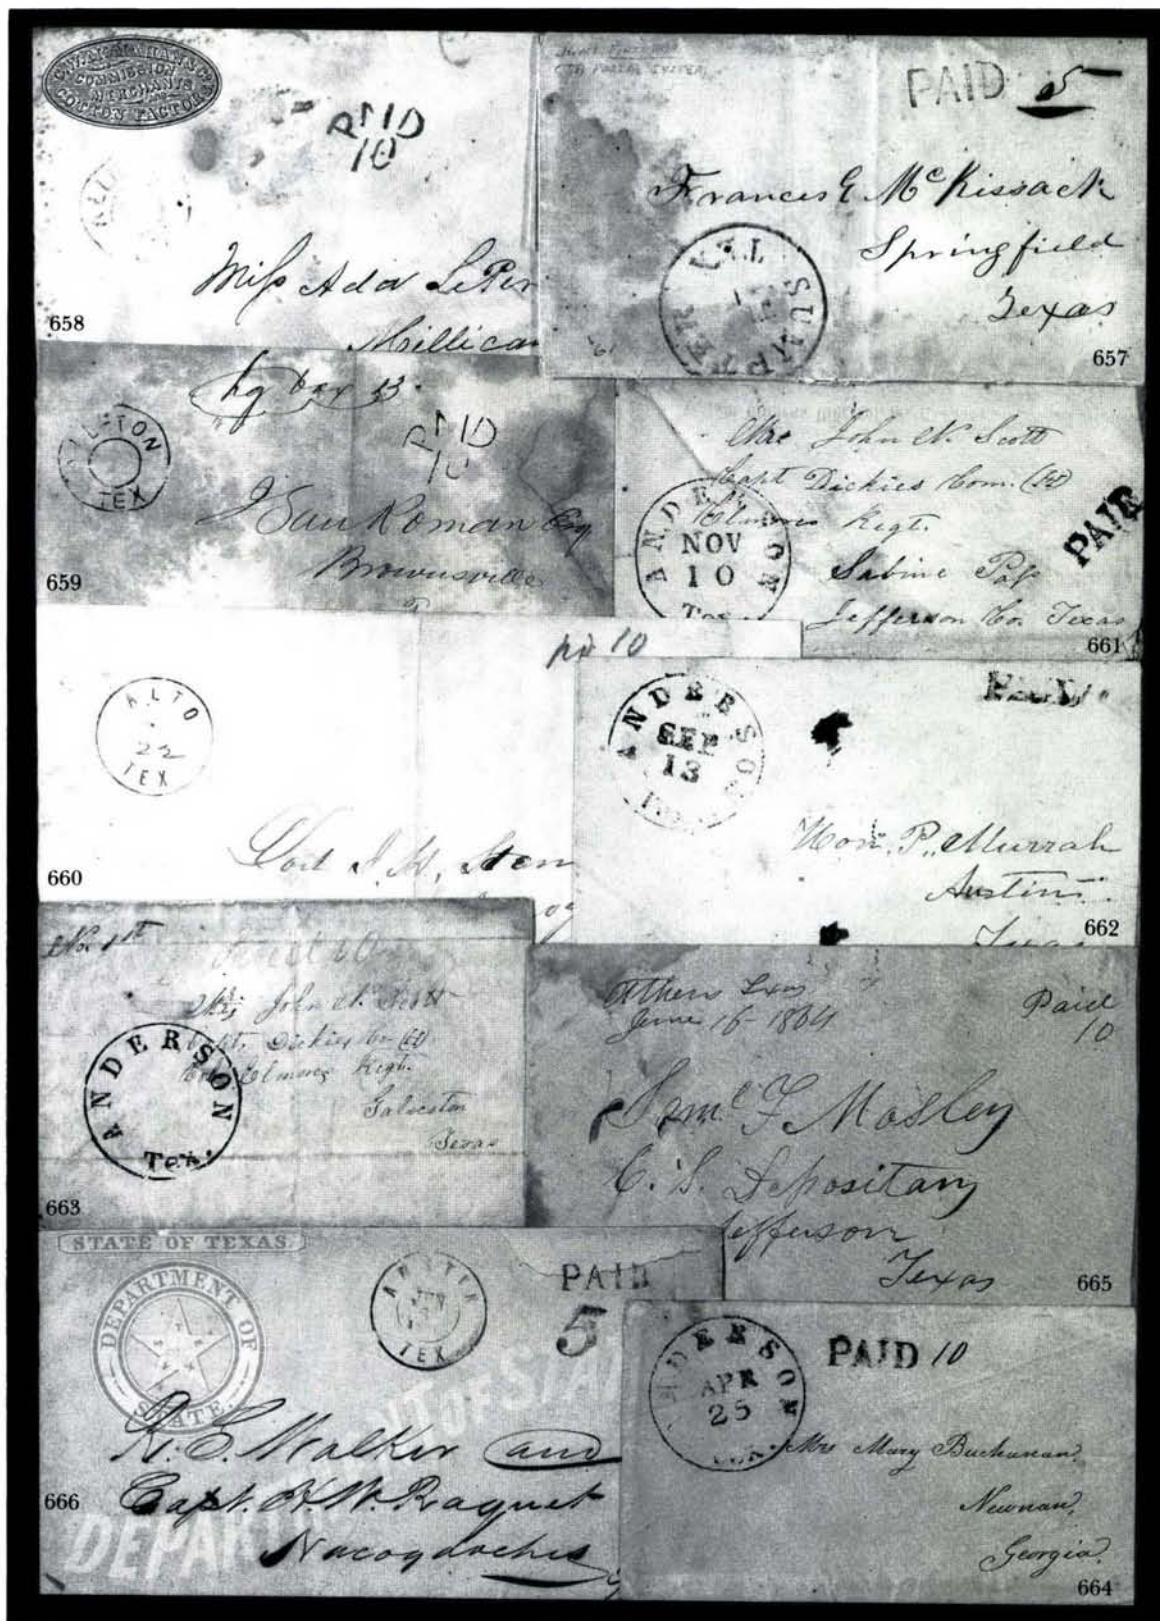 COMMISSION
MERCHANTS
COTTON FACTORS
PAID
10
Miss Ada
Millican
658
PAID 5
Frances E McKissack
Springfield
Texas
SUMPTER
657
box 53
TEX
PAID
10
J San Roman Esq
Brownsville
659
John N. Scott
Capt Dickies Com. (H)
Elmores Regt.
Sabine Pass
Jefferson Co. Texas
ANDERSON
NOV
10
Tex.
PAID
661
pd 10
ALTO
22
TEX
660
ANDERSON
SEP
13
PAID
Hon. P. Murrah
Austin
Texas
662
John N. Scott
Capt. Dickies Co (H)
Col Elmores Regt.
Galveston
Texas
ANDERSON
Tex.
663
Athens Texas
June 16-1864
Paid
10
Saml F Mosley
C. S. Depositary
Jefferson
Texas
665
STATE OF TEXAS
DEPARTMENT OF
STATE
AUSTIN
TEX
PAID
5
R. C. Walker and
Capt. H. W. Raguet
Nacogdoches
666
ANDERSON
APR
25
TEX.
PAID 10
Mrs Mary Buchanan
Newnan,
Georgia.
664